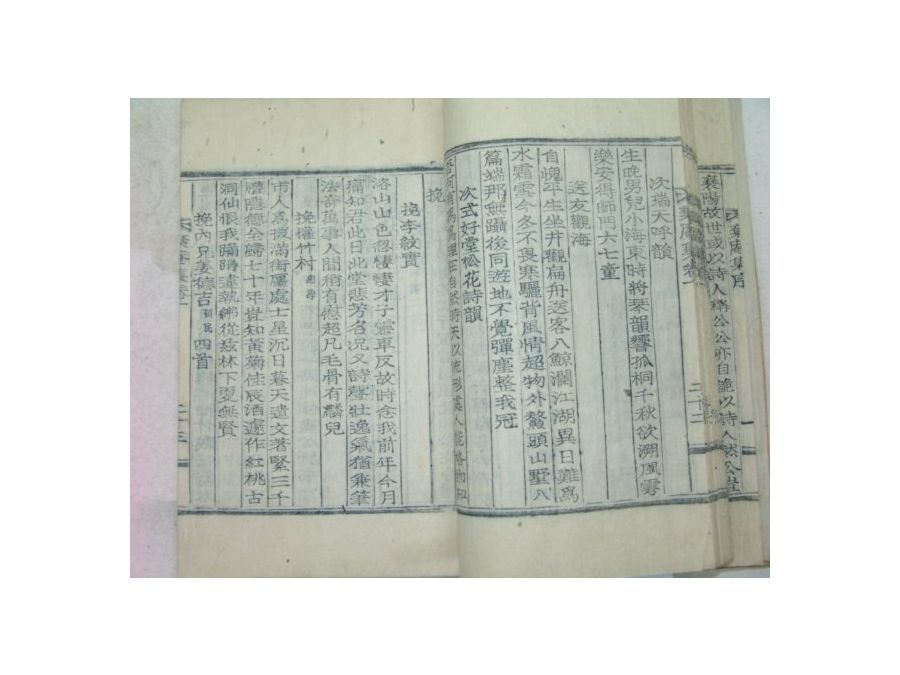 襄陽故世或以詩人稱公公亦自詭以詩人
次瑞天呼韻
生晚男兒小海東時將琴韻響孤桐千秋欲溯風雩
樂安得師門六七童
送友觀海
自愧平生坐井觀扁舟送客入鯨瀾江湖異日難為
水霜雪今冬不畏寒驪背風情超物外鰲頭山墅八
篇端那無躡後同遊地不覺彈塵整我冠
次式好堂松花詩韻
挽
挽李紋實
洛山山色忽悽悽才子靈車反故時念我前年今月
痛知君此日此堂悲芳名況又詩聲壯逸氣猶兼筆
法奇萬事人間稍有慰超凡毛骨有麟兒
挽權竹村
市人為掇滿街屬處士星沉日暮天遺文著緊三千
禮陰德全歸七十年豈知黃菊佳辰酒遽作紅桃古
洞仙恨我蹣跚違執紼從玆林下更無賢
挽內兄妻德吉 四首